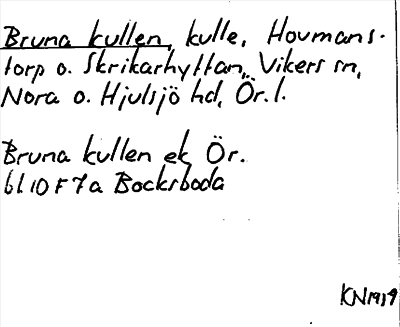 Bruna kullen, kulle, Hovmans-
torp o. Skrikarhyttan, Vikers sn,
Nora o. Hjulsjö hd, Ör. l.
Bruna kullen ek Ör.
bl 10 F 7 a Bocksboda
KN 1919